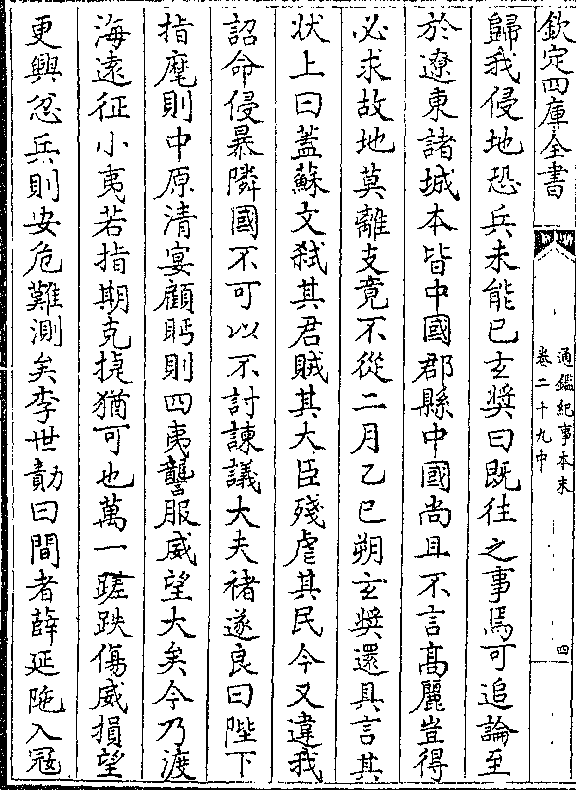 欽定四庫全書
通鑑紀事本末
卷二十九中
四
歸我侵地恐兵未能已玄奬曰既往之事焉可追論至
於遼東諸城本皆中國郡縣中國尚且不言髙麗豈得
必求故地莫離支竟不從二月乙巳朔玄奬還具言其
状上曰蓋蘇文弑其君賊其大臣殘虐其民今又違我
詔命侵暴隣國不可以不討諫議大夫褚遂良曰陛下
指麾則中原清宴顧眄則四夷讋服威望大矣今乃渡
海遠征小夷若指期克捷猶可也萬一蹉跌傷威損望
更興忿兵則安危難測矣李世勣曰間者薛延陁入冦